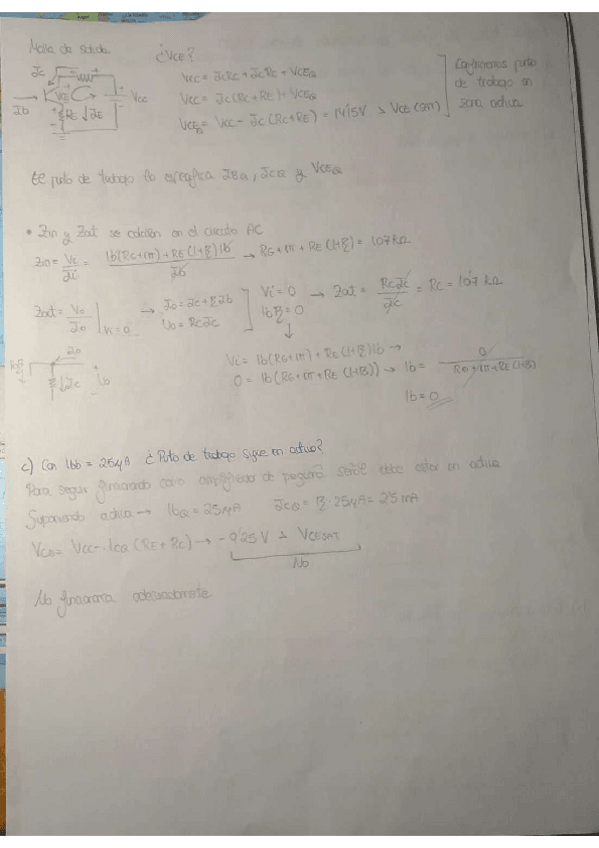 Malla de salida ¿VCE?
Vcc = JcRc + JcRE + VCEQ
Vcc = Jc(Rc+RE) + VCEQ
VCEQ = Vcc - Jc(Rc+RE) = 14'15V > VCE(on)
Confirmamos punto
de trabajo en
zona activa
Jc
Jb
VCE
RE JE
Vcc
El punto de trabajo lo especifica JBQ, JCQ y VCEQ
• Zin y Zout se calculan en el circuito AC
Zin = Vi/Ji = Ib(RG+rπ) + RE(1+β)Ib / Jb → RG+rπ + RE(1+β) = 107 kΩ
Zout = Vo/Jo | Vi=0 → Jo = Jc+βJb
Vo = RcJc
Vi = 0
Ibβ = 0
→ Zout = RcJc/Jc = Rc = 1'07 kΩ
Vi = Ib(RG+rπ) + RE(1+β)Ib →
0 = Ib(RG+rπ+RE(1+β)) → Ib = 0 / RG+rπ+RE(1+β)
Ib = 0
Jo
Jc
Vo
c) Con Ibb = 25μA ¿Punto de trabajo sigue en activa?
Para seguir funcionando como amplificador de pequeña señal debe estar en activa
Suponiendo activa → IbQ = 25μA JCQ = β·25μA = 2'5 mA
VCEQ = Vcc - ICQ (RE+Rc) → -9'25 V > VCESAT
No
No funcionaría adecuadamente